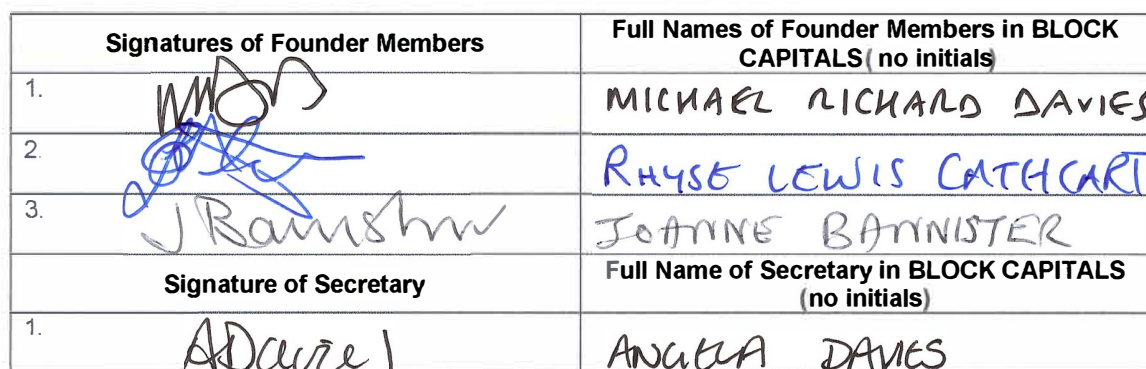 Signatures of Founder Members
Full Names of Founder Members in BLOCK
CAPITALS( no initials)
1.
MICHAEL RICHARD DAVIES
2.
RHYSE LEWIS CATHCART
3. J Bannister
JOANNE BANNISTER
Signature of Secretary
Full Name of Secretary in BLOCK CAPITALS
(no initials)
1. ADavies
ANGELA DAVIES